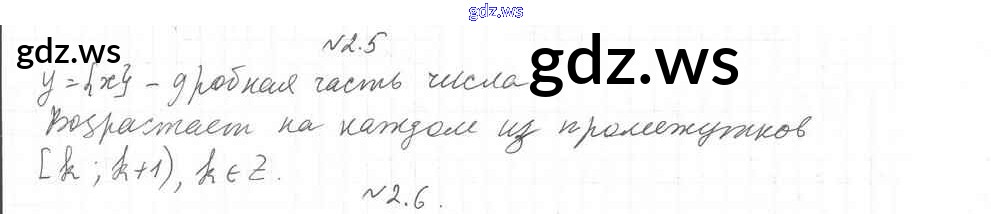 gdz.ws
gdz.ws
№2.5
gdz.ws
y={x} - дробная часть числа
Возрастает на каждом из промежутков
[k; k+1), k∈Z.
№2.6.